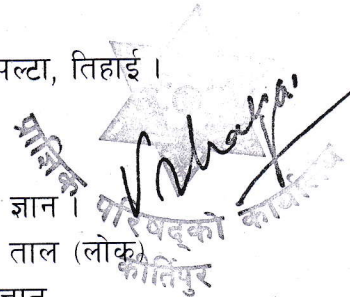 पल्टा, तिहाई ।
ज्ञान ।
ताल (लोक)
ज्ञान
प्राज्ञिक परिषद्को कार्यालय
कीर्तिपुर